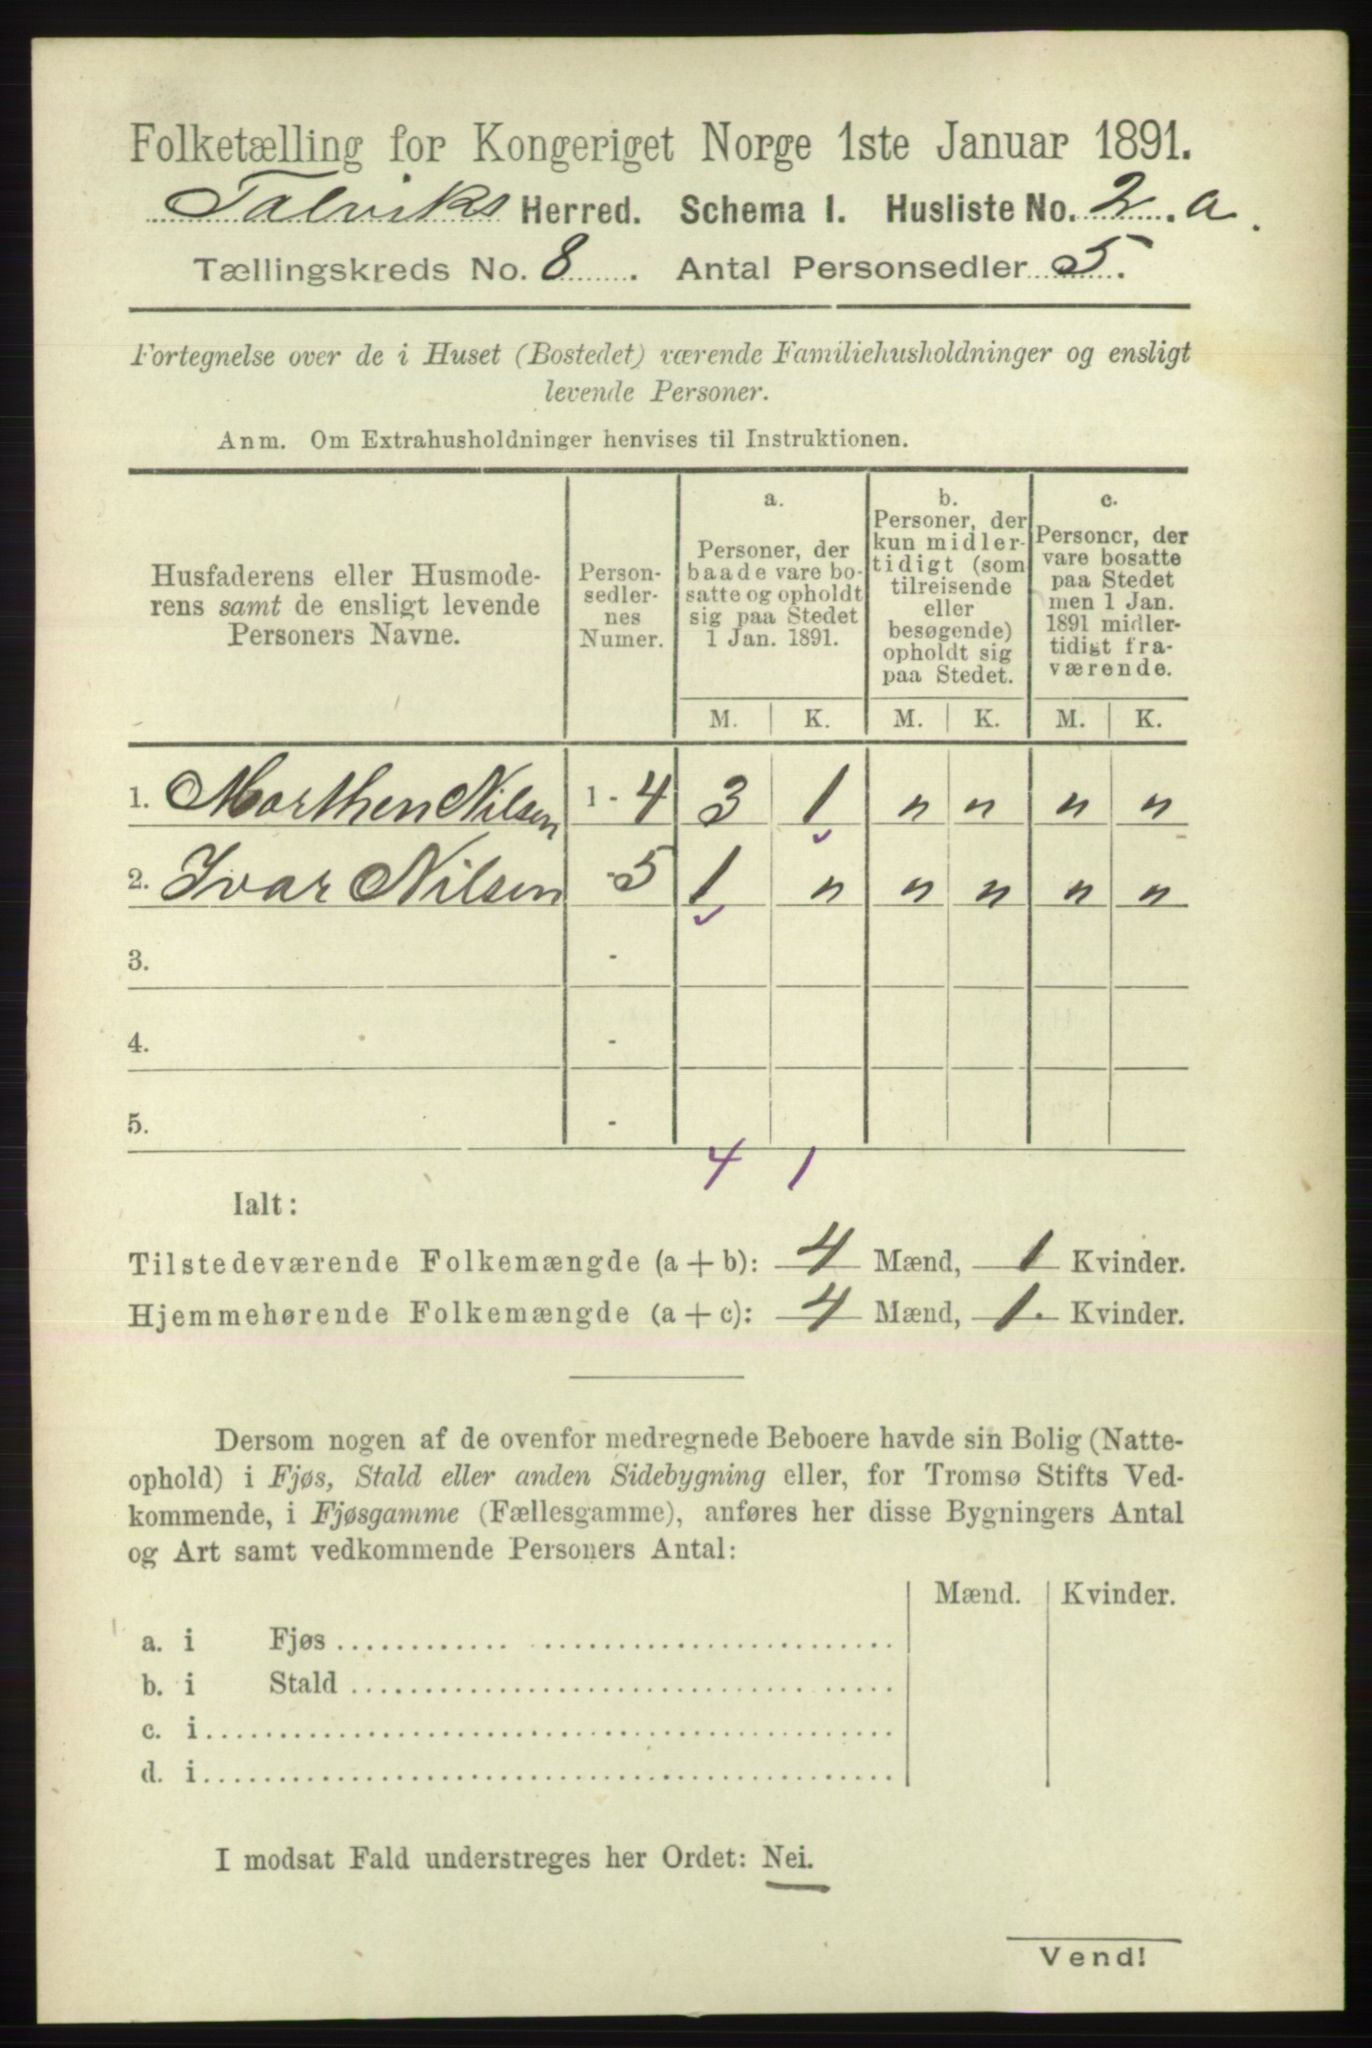 Folketælling for Kongeriget Norge 1ste Januar 1891.
Talviks Herred. Schema I. Husliste No. 2. a.
Tællingskreds No. 8. Antal Personsedler 5.
Fortegnelse over de i Huset (Bostedet) værende Familiehusholdninger og ensligt
levende Personer.
Anm. Om Extrahusholdninger henvises til Instruktionen.
Husfaderens eller Husmode-
rens samt de ensligt levende
Personers Navne.
Person-
sedler-
nes
Numer.
a.
Personer, der
baade vare bo-
satte og opholdt
sig paa Stedet
1 Jan. 1891.
b.
Personer, der
kun midler-
tidigt (som
tilreisende
eller
besøgende)
opholdt sig
paa Stedet.
c.
Personer, der
vare bosatte
paa Stedet
men 1 Jan.
1891 midler-
tidigt fra-
værende.
M. K. M. K. M. K.
1. Morthen Nilsen 1 - 4 3 1 " " " "
2. Ivar Nilsen - 5 1 " " " " "
3. -
4. -
5. -
4 1
Ialt:
Tilstedeværende Folkemængde (a + b): 4 Mænd, 1 Kvinder.
Hjemmehørende Folkemængde (a + c): 4 Mænd, 1. Kvinder.
Dersom nogen af de ovenfor medregnede Beboere havde sin Bolig (Natte-
ophold) i Fjøs, Stald eller anden Sidebygning eller, for Tromsø Stifts Ved-
kommende, i Fjøsgamme (Fællesgamme), anføres her disse Bygningers Antal
og Art samt vedkommende Personers Antal:
Mænd. Kvinder.
a. i Fjøs
b. i Stald
c. i
d. i
I modsat Fald understreges her Ordet: Nei.
Vend!